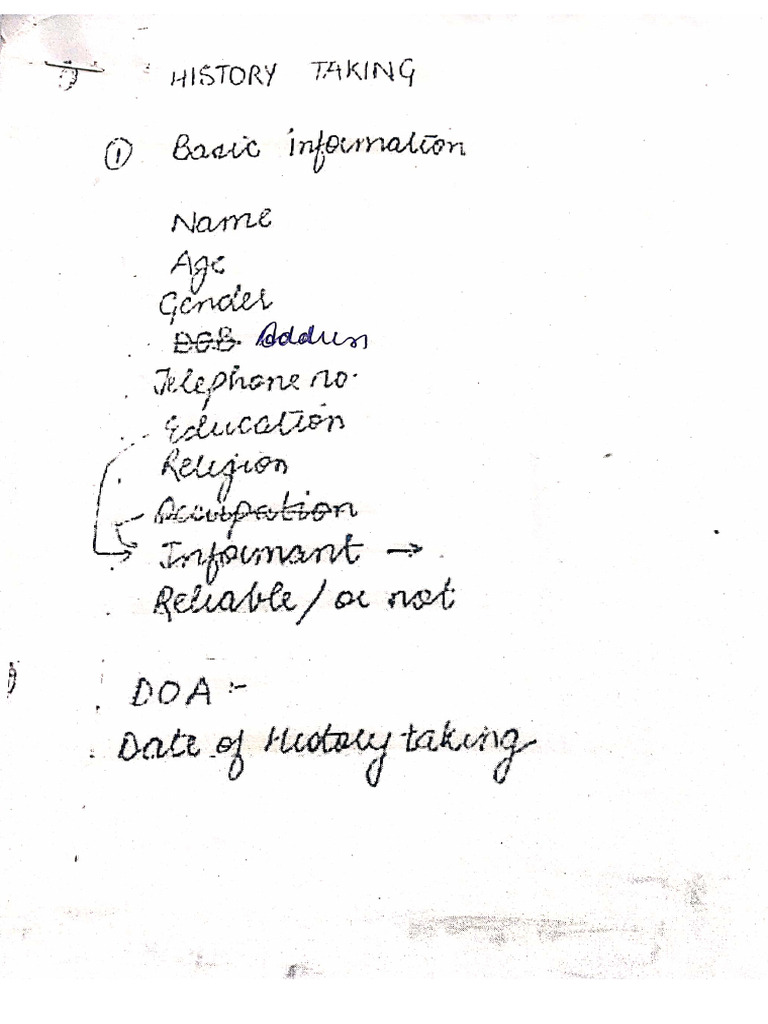 HISTORY TAKING
① Basic information
Name
Age
Gender
DOB Address
Telephone no.
Education
Religion
Occupation
Informant →
Reliable / or not
DOA :-
Date of History taking